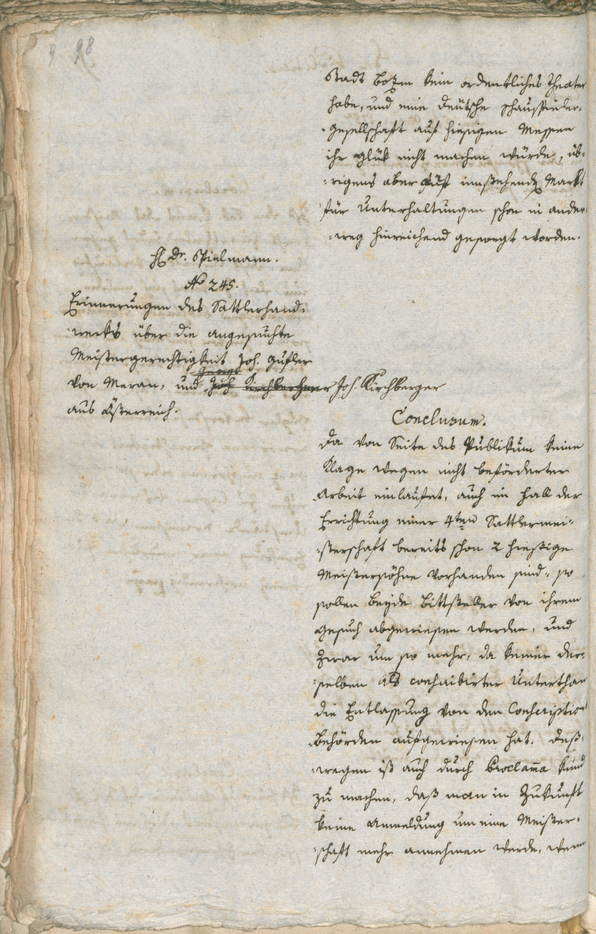 98
Stadt Bozen kein ordentliches Theater
habe, und eine deutsche Schauspieler-
gesellschaft auf hiesigen Messen
ihr Glük nicht machen würde, üb-
rigens aber auf einstehenden Markt
für Unterhaltungen schon in ander-
weg hinreichend gesorgt worden.
H. Dr. Spielmann.
No 245.
Erinnerungen des Sattlerhand-
werks über die angesuchte
Meistergerechtigkeit Joh. Gufler
von Meran, und Joh. Kirchberger
aus Österreich.
Conclusum.
Da von Seite des Publikum keine
Klage wegen nicht beförderter
Arbeit einlaufet, auch im Fall der
Errichtung einer 4ten Sattlermei-
sterschaft bereits schon 2 hiesige
Meistersöhne vorhanden sind, so
sollen beyde Bittsteller von ihrem
Gesuch abgewiesen werden, und
zwar um so mehr, da keiner der-
selben als conscribirter Unterthan
die Entlassung von den Conscriptions
Behörden aufgewiesen hat. Deß-
wegen ist auch durch Proclama kund
zu machen, daß man in Zukunft
keine Anmeldung um eine Meister-
schaft mehr annehmen werde, wenn